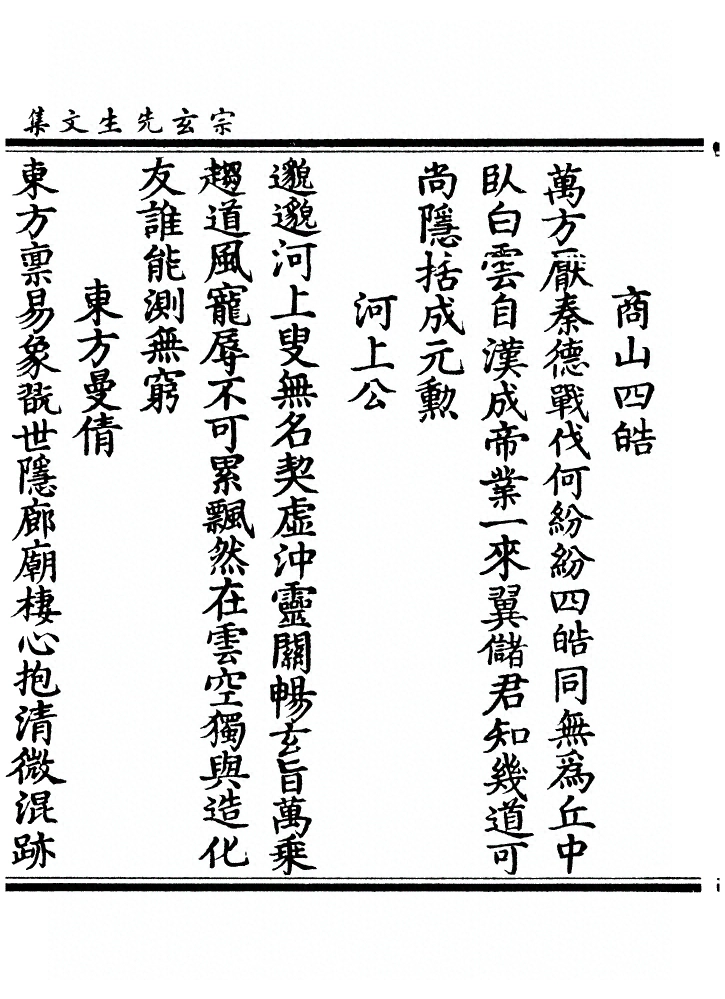 宗玄先生文集
商山四皓
萬方厭秦德戰伐何紛紛四皓同無爲丘中
臥白雲自漢成帝業一來翼儲君知幾道可
尚隱括成元勳
河上公
邈邈河上叟無名契虛沖靈關暢玄旨萬乘
趨道風寵辱不可累飄然在雲空獨與造化
友誰能測無窮
東方曼倩
東方禀易象翫世隱廊廟棲心抱清微混跡